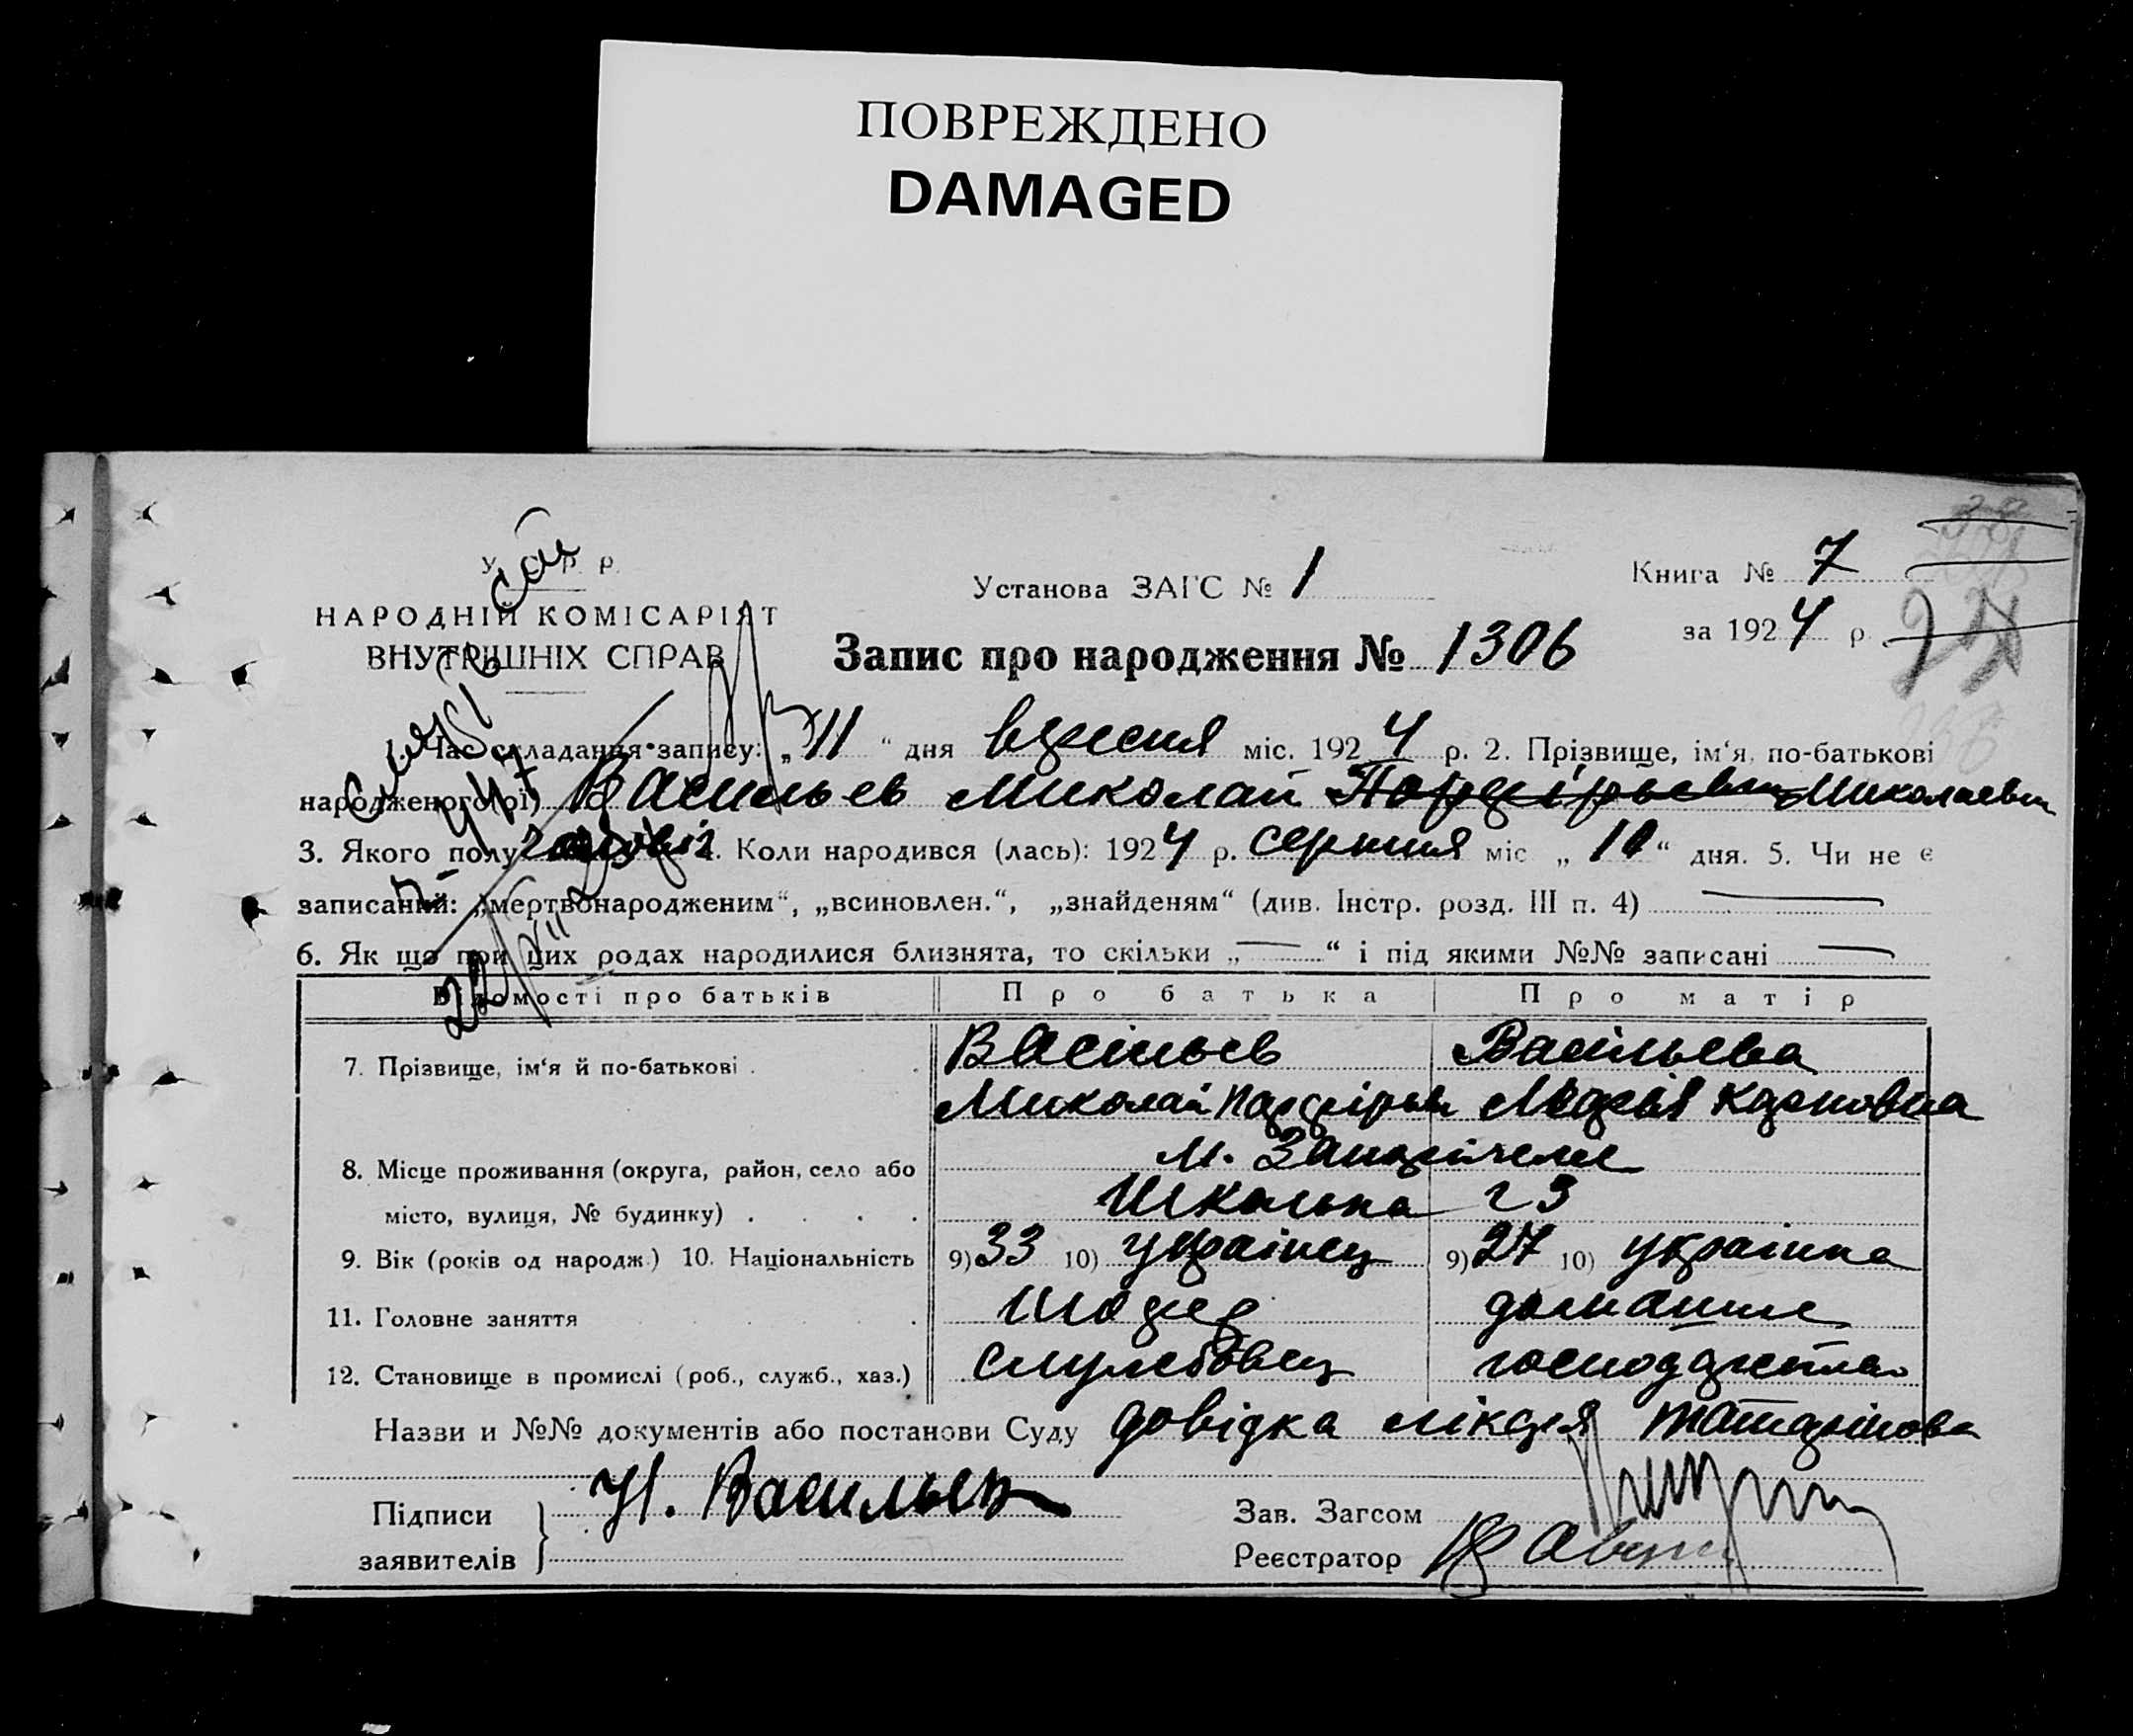 ПОВРЕЖДЕНО
DAMAGED
У. С. Р. Р.
НАРОДНІЙ КОМІСАРІЯТ
ВНУТРІШНІХ СПРАВ
Установа ЗАГС № 1
Книга № 7
за 1924 р.
Запис про народження № 1306
Час складання запису: „11“ дня вересня міс. 1924 р. 2. Прізвище, ім‘я, по-батькові
народженого(рі) Васильев Миколай Порфірьевич Миколаевич
3. Якого полу чоловіч 4. Коли народився (лась): 1924 р. серпня міс „10“ дня. 5. Чи не є
записаний: „мертвонародженим“, „всиновлен.“, „знайденям“ (див. Інстр. розд. III п. 4)
6. Як що при цих родах народилися близнята, то скільки „ “ і під якими №№ записані
Відомості про батьків Про батька Про матір
7. Прізвище, ім‘я й по-батькові . Васільєв Васільева
Миколай Марія Карповна
8. Місце проживання (округа, район, село або м. Запоріжже
місто, вулиця, № будинку) . . . . Шкільна 23
9. Вік (років од народж.) 10. Національність 9) 33 10) українец 9) 27 10) українка
11. Головне заняття Шофер домашнє
12. Становище в промислі (роб., служб., хаз.) службовец господарство
Назви и №№ документів або постанови Суду довідка лікаря Татарінова
Підписи заявителів } Н. Васильев
Зав. Загсом
Реєстратор